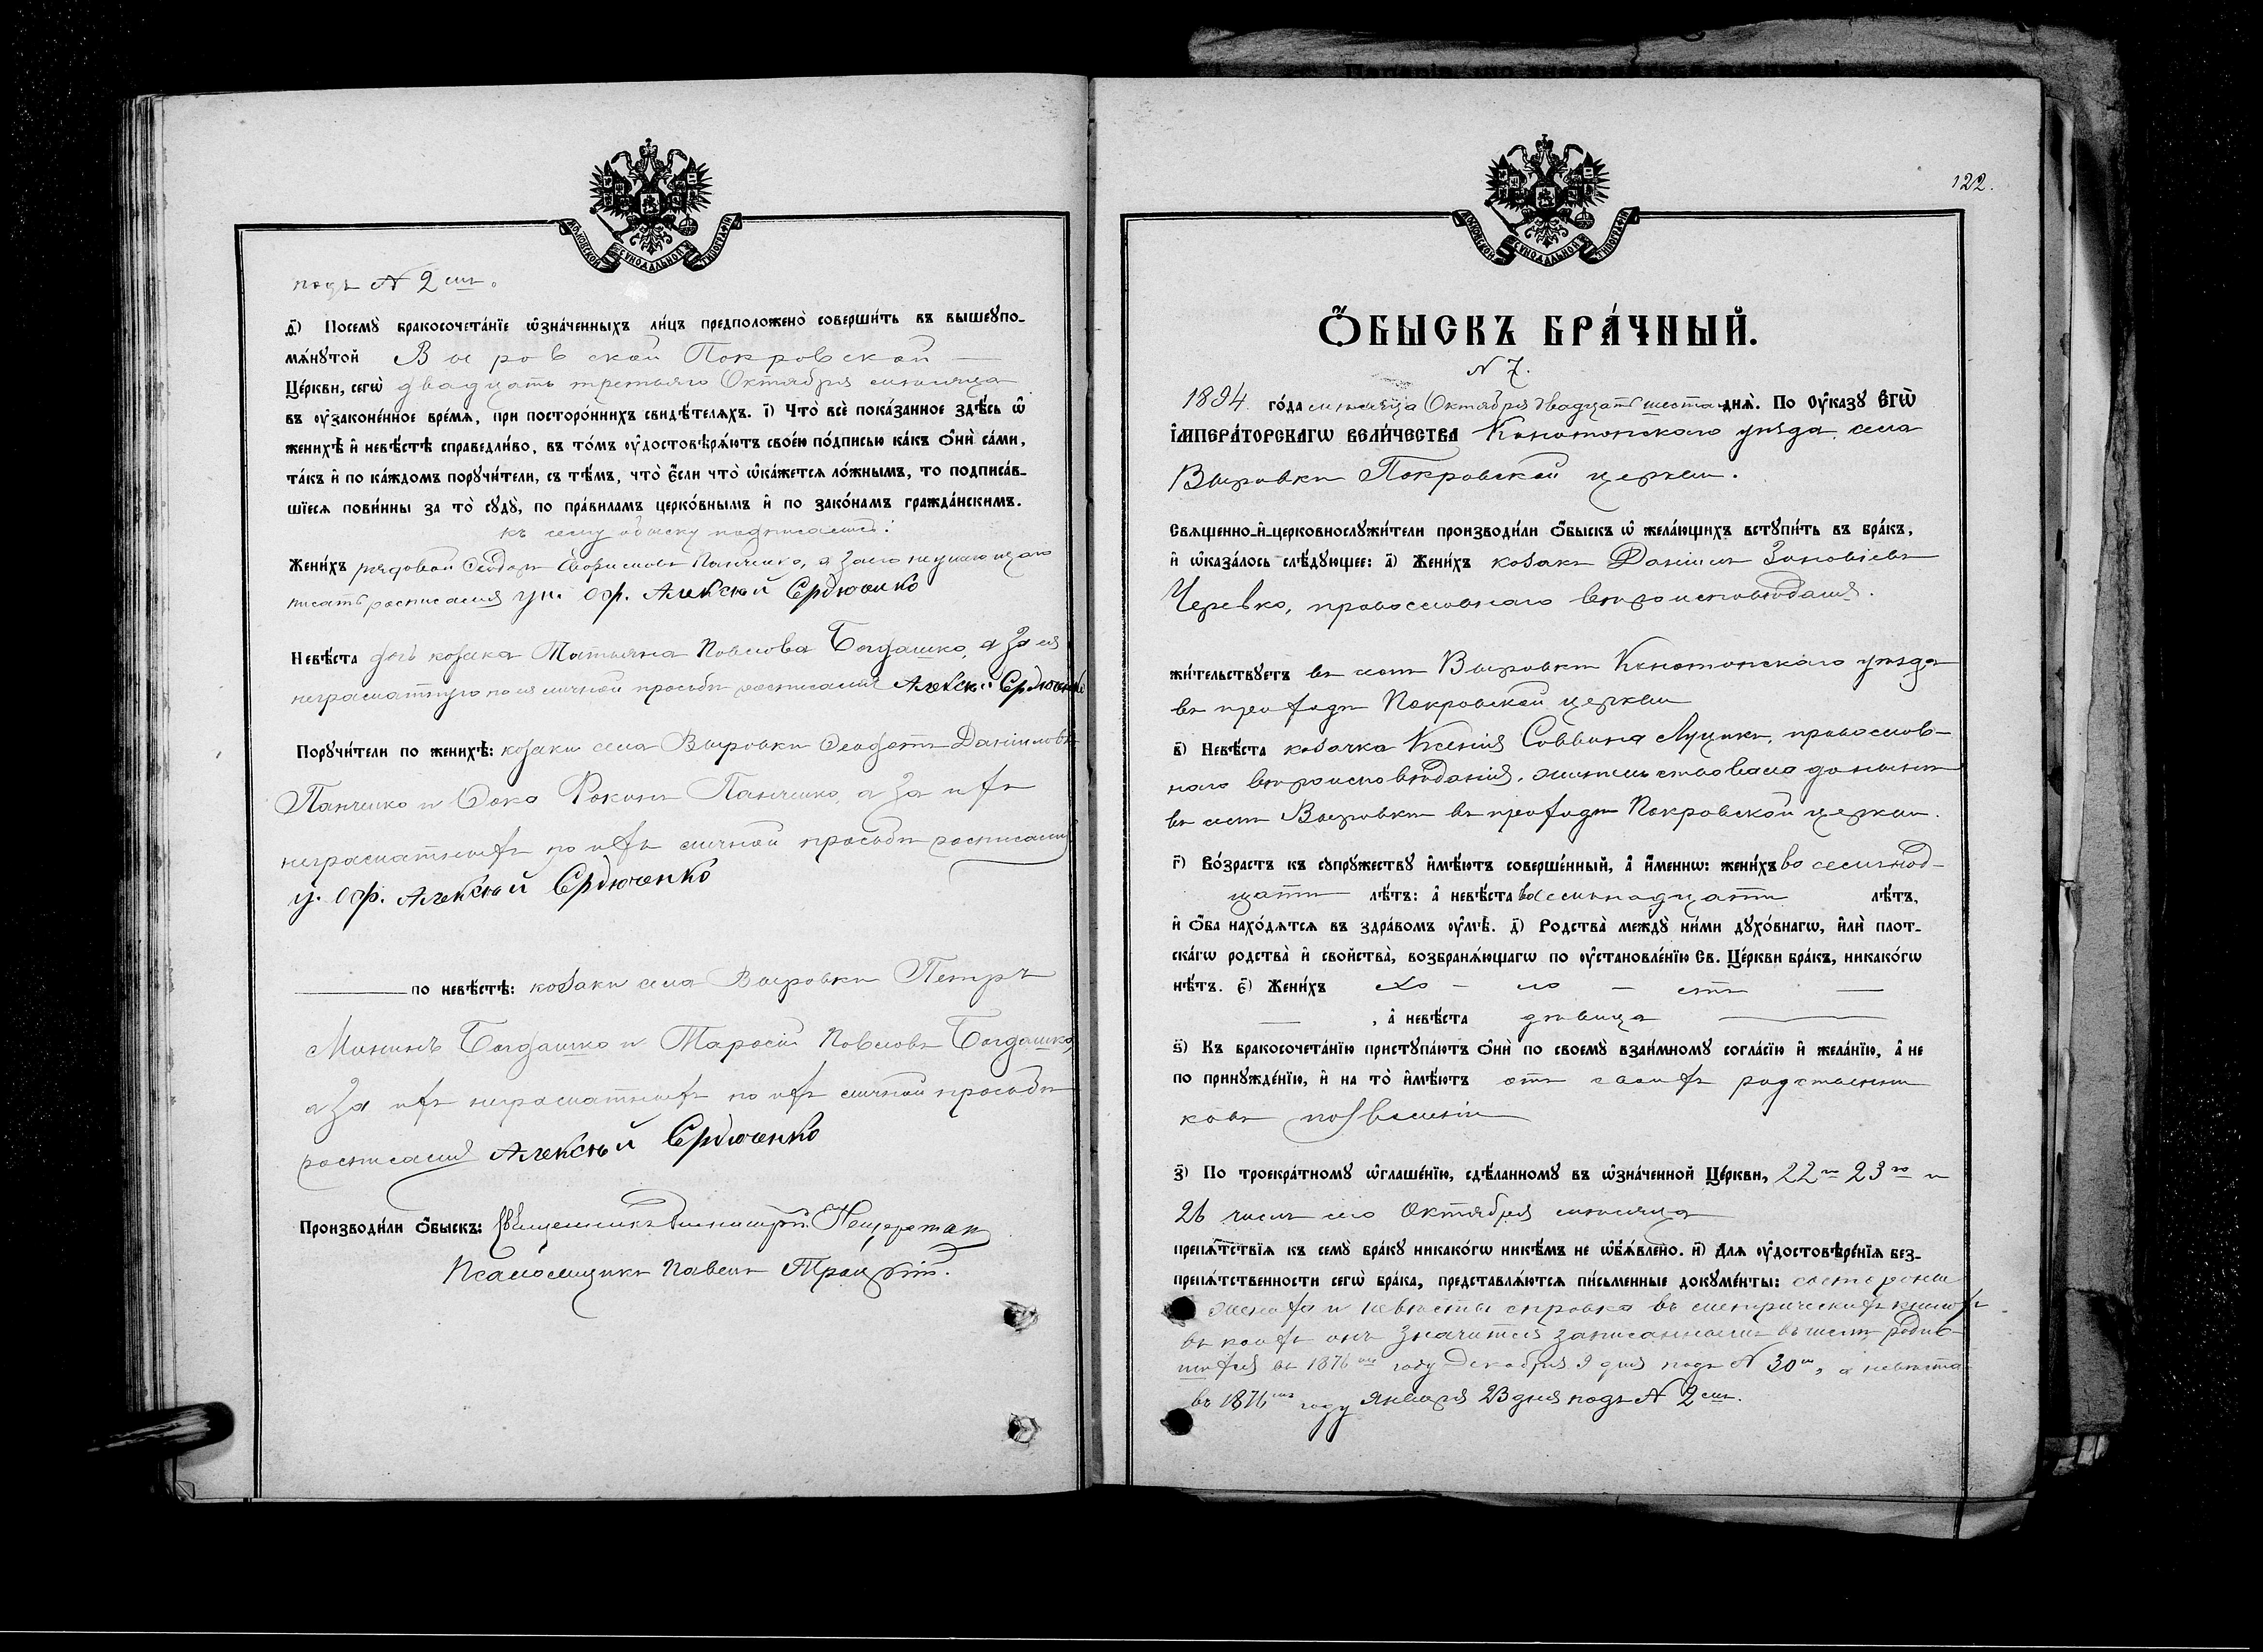 МОСКОВСКОЙ СѴНОДАЛЬНОЙ ТИПОГРАФІИ
подъ № 2мъ.
д҃і) Посемꙋ̀ бракосочета́нїе ѡ҆зна́ченныхъ ли́цъ предположено̀ соверши́ть въ вышеꙋпо-
мѧ́нꙋтой Выровской Покровской —
Це́ркви, сегѡ̀ двадцать третьяго Октября мѣсяца
въ ᲂу҆законе́нное вре́мѧ, при посторо́ннихъ свидѣ́телѧхъ. і҃) Что̀ всѐ пока́занное здѣ́сь ѡ҆
женихѣ̀ и҆ невѣ́стѣ справедли́во, въ то́мъ ᲂу҆достовѣрѧ́ютъ свое́ю по́дписью ка́къ ѻ҆нѝ са́ми,
та́къ и҆ по ка́ждомъ порꙋчи́тели, съ тѣ́мъ, что̀ є҆́сли что̀ ѡ҆ка́жетсѧ ло́жнымъ, то подписа́в-
шїесѧ пови́нны за то̀ сꙋдꙋ̀, по пра́виламъ церко́внымъ и҆ по зако́намъ гражда́нскимъ.
къ сему обыску подписались:
Жени́хъ рядовой Ѳеодоръ Панченко, а за него неумѣющаго
писать росписался ун. оф. Алексѣй Сердюченко
Невѣ́ста дочь козака Татьяна Павлова Богдашко, а за нея
неграматную по ея личной просьбѣ росписался Алексѣй Сердюченко
Порꙋчи́тели по женихѣ̀: козаки села Выровки Даніиловъ
Панченко и Ѳока Панченко, а за ихъ
неграматныхъ по ихъ личной просьбѣ росписался
у. оф. Алексѣй Сердюченко
по невѣ́стѣ: козаки села Выровки Петръ
Мининъ Богдашко и Тарасій Павловъ Богдашко,
а за ихъ неграматныхъ по ихъ личной просьбѣ
росписался Алексѣй Сердюченко
Производи́ли ѻ҆́быскъ: Священникъ Димитрій
Псаломщикъ Павелъ
122.
МОСКОВСКОЙ СѴНОДАЛЬНОЙ ТИПОГРАФІИ
Ѻ҆́БЫСКЪ БРА́ЧНЫЙ.
№ 7.
1894 го́да мѣсяца Октября двадцать шестаго днѧ̀. По Оу҆ка́зꙋ Є҆гѡ̀
І҆мпера́торскагѡ Вели́чества Конотопскаго уѣзда села
Выровки Покровской церкви.
Свѧщенно-и҆-церковнослꙋжи́тели производи́ли ѻ҆́быскъ ѡ҆ жела́ющихъ встꙋпи́ть въ бра́къ,
и҆ ѡ҆каза́лось слѣ́дꙋющее: а҃) Жени́хъ козакъ Даніилъ Зиновіевъ
Черевко, православнаго вѣроисповѣданія.
жи́тельствꙋетъ въ селѣ Выровкѣ Конотопскаго уѣзда
въ приходѣ Покровской церкви
в҃) Невѣ́ста козачка Ксенія Саввина Луцикъ, православ-
наго вѣроисповѣданія, жительствовала донынѣ
въ селѣ Выровкѣ въ приходѣ Покровской церкви.
г҃) Во́зрастъ къ сꙋпрꙋ́жествꙋ и҆мѣ́ютъ соверше́нный, а҆ и҆́меннѡ: жени́хъ во семьнад-
цати лѣ́тъ: а҆ невѣ́ста восемьнадцати лѣ́тъ,
и҆ ѻ҆́ба нахо́дѧтсѧ въ здра́вомъ ᲂу҆мѣ̀. д҃) Родства̀ междꙋ̀ ни́ми дꙋхо́внагѡ, и҆лѝ плот-
ска́гѡ родства̀ и҆ сво́йства, возбранѧ́ющагѡ по ᲂу҆становле́нїю Св. Це́ркви бра́къ, никако́гѡ
нѣ́тъ. є҃) Жени́хъ хо – ло – стъ —
— , а҆ невѣ́ста дѣвица —
ѕ҃) Къ бракосочета́нїю пристꙋпа́ютъ ѻ҆нѝ по своемꙋ̀ взаи́мномꙋ согла́сїю и҆ жела́нїю, а҆ не
по принꙋжде́нїю, и҆ на то̀ и҆мѣ́ютъ отъ своихъ родственни
ковъ позволеніе
з҃) По троекра́тномꙋ ѡ҆глаше́нїю, сдѣ́ланномꙋ въ ѡ҆зна́ченной Це́ркви, 22го 23го и
26 числъ Октября мѣсяца
препѧ́тствїѧ къ семꙋ̀ бра́кꙋ никако́гѡ никѣ́мъ не ѡ҆б̾ѧ́влено. и҃) Для ᲂу҆достовѣре́нїѧ без-
препѧ́тственности сегѡ̀ бра́ка, представлѧ́ютсѧ пи́сьменные докꙋме́нты: со стороны
жениха и невѣсты справка въ метрическихъ книгахъ
въ коихъ онъ значится записаннымъ родив-
шихся въ 1876мъ году Декабря 9 дня подъ № 30мъ, а невѣста
въ 1876мъ году Января 23 дня подъ № 2мъ.